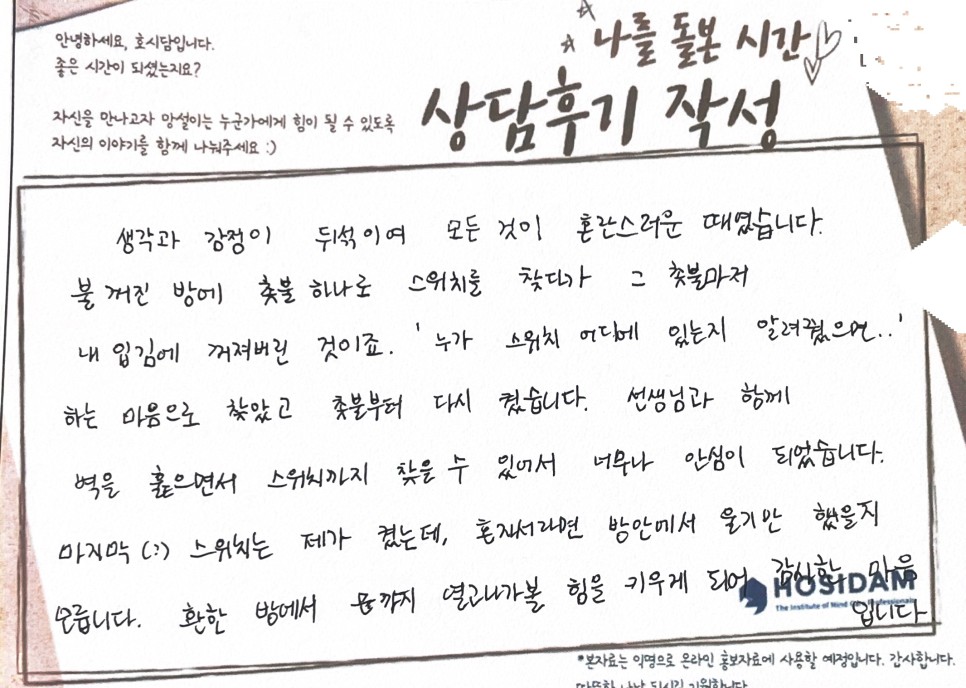 안녕하세요, 호시담입니다.
좋은 시간이 되셨는지요?
자신을 만나고자 망설이는 누군가에게 힘이 될 수 있도록
자신의 이야기를 함께 나눠주세요 :)
나를 돌본 시간
상담후기 작성
생각과 감정이 뒤섞이며 모든 것이 혼란스러운 때였습니다.
불 꺼진 방에 촛불 하나로 스위치를 찾다가 그 촛불마저
내 입김에 꺼져버린 것이죠. '누가 스위치 어디에 있는지 알려줬으면..'
하는 마음으로 찾았고 촛불부터 다시 켰습니다. 선생님과 함께
벽을 훑으면서 스위치까지 찾을 수 있어서 너무나 안심이 되었습니다.
마지막(?) 스위치는 제가 켰는데, 혼자서라면 방안에서 울기만 했을지
모릅니다. 환한 방에서 끝까지 열고나가볼 힘을 키우게 되어 감사한 마음
입니다
HOSIDAM
The Institute of Mind
*본자료는 익명으로 온라인 홍보자료에 사용할 예정입니다. 감사합니다.